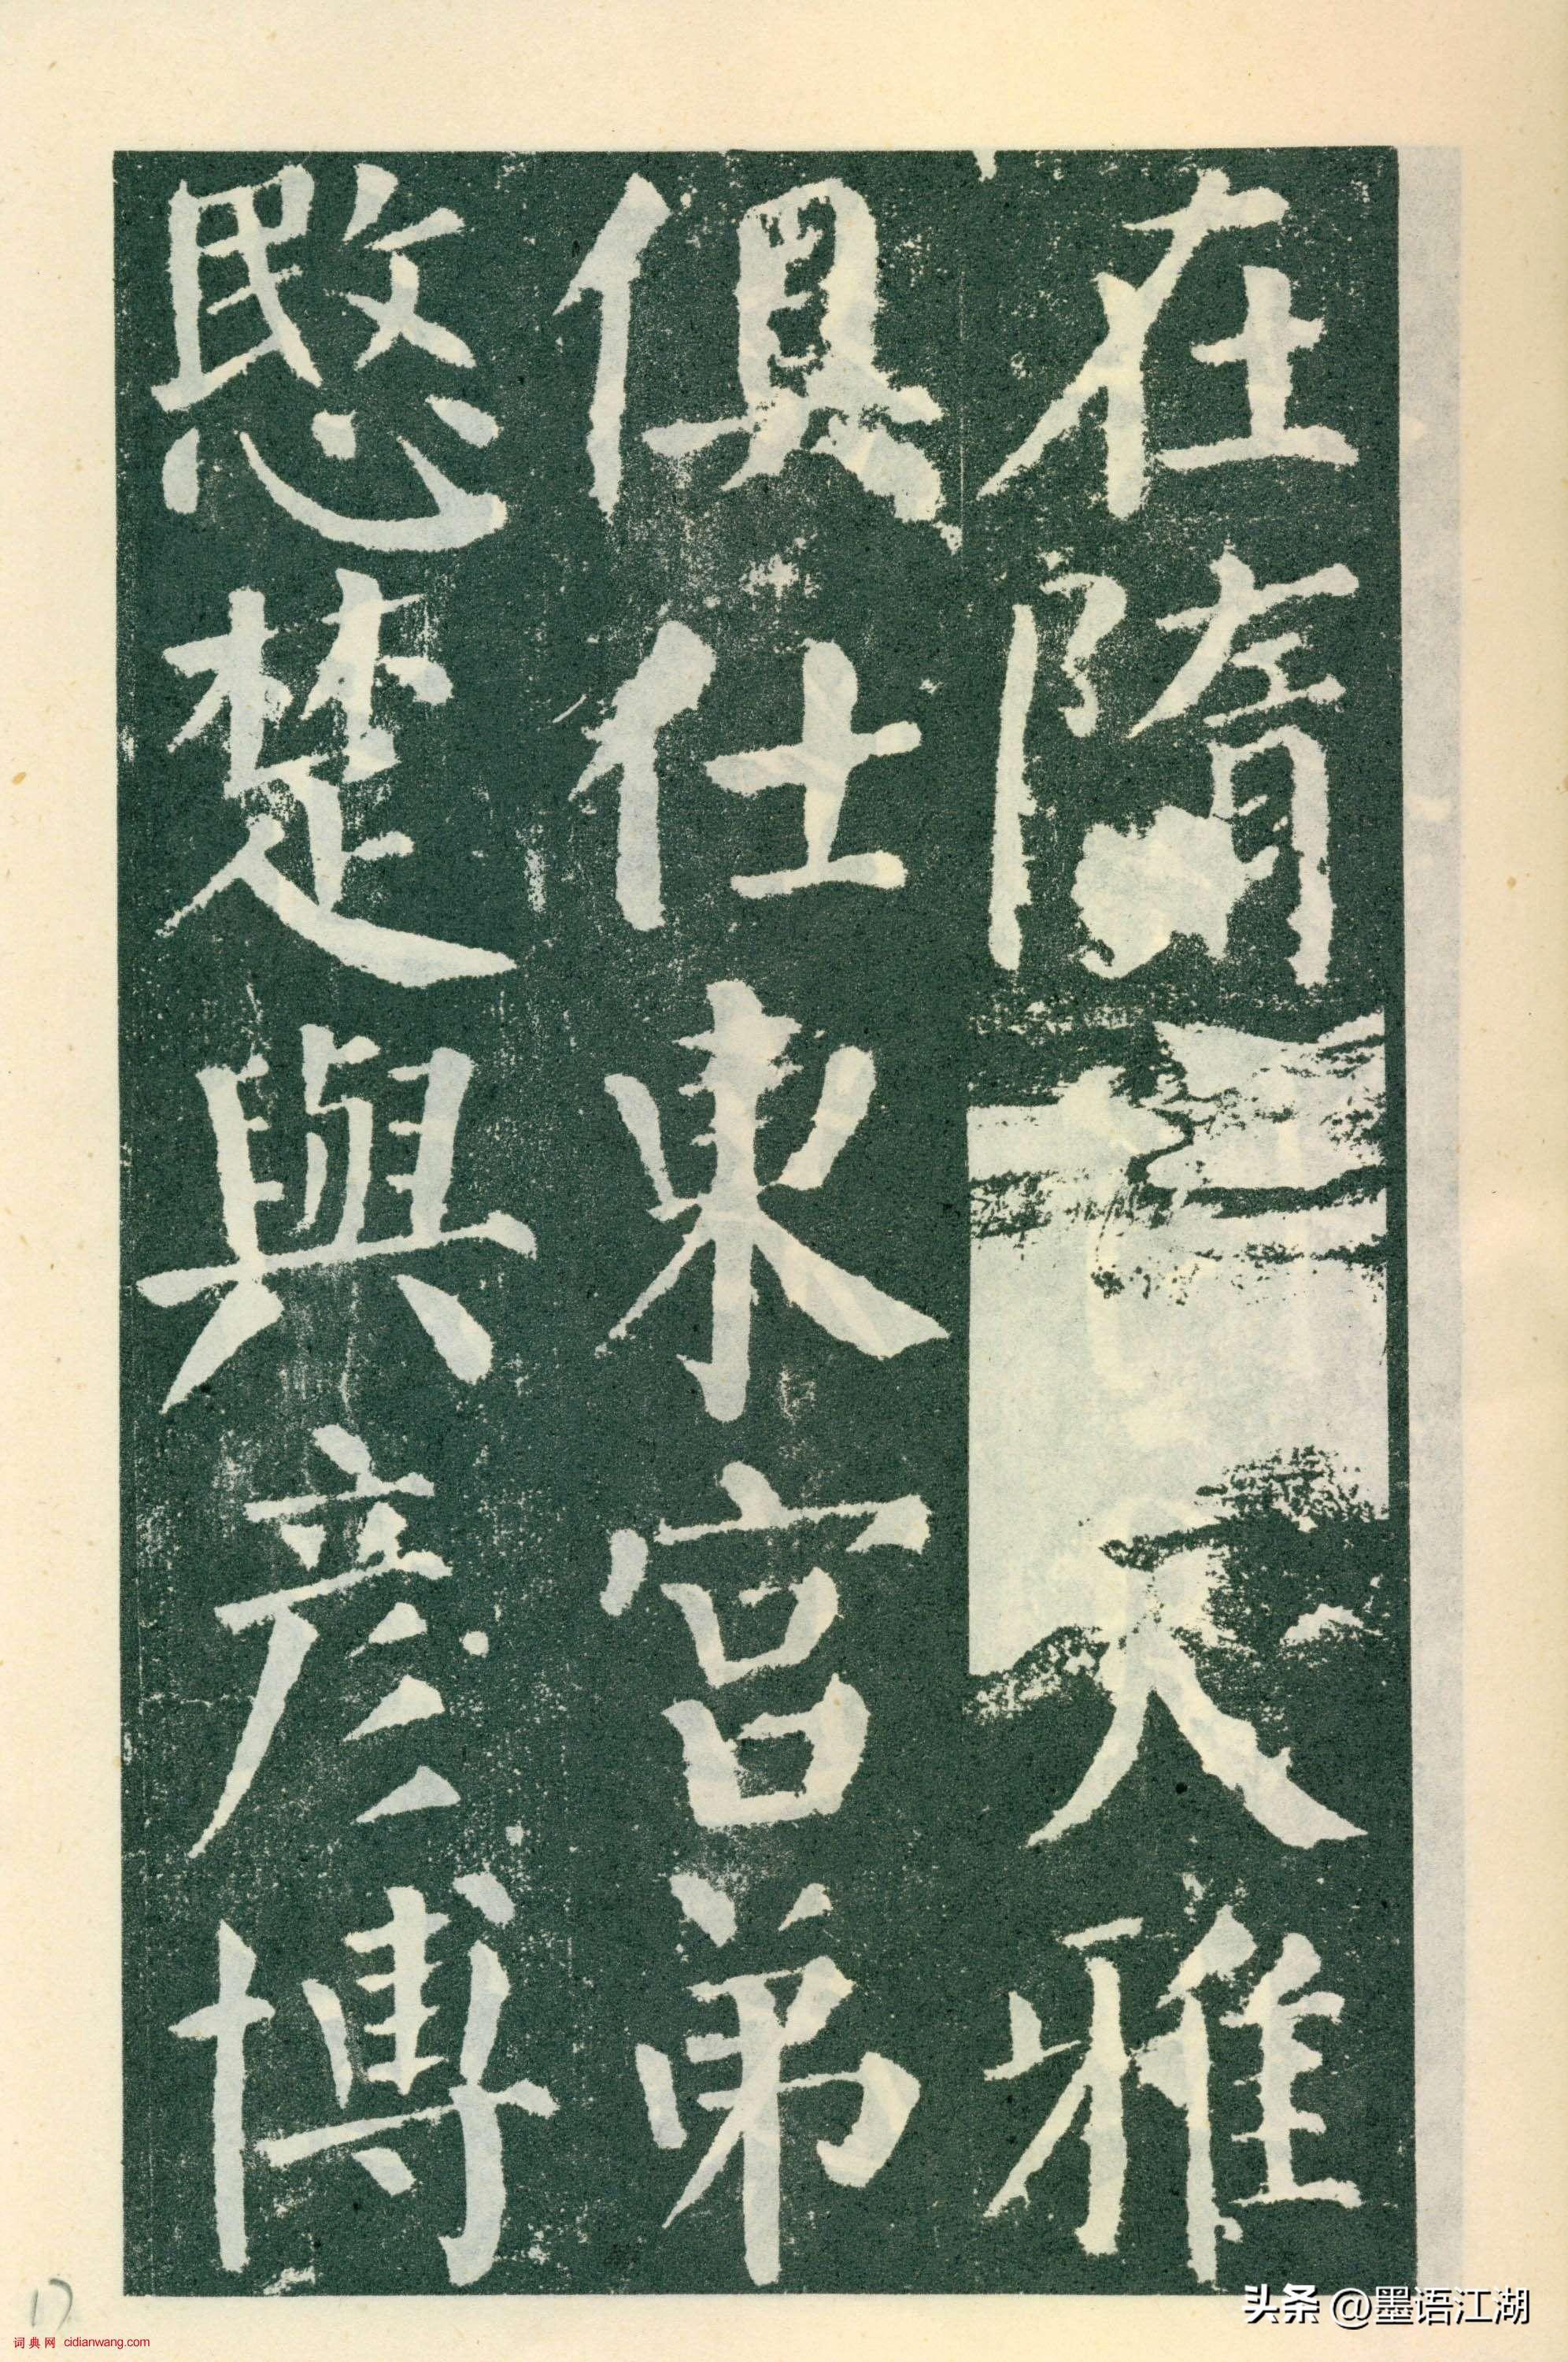 在隋□□大雅
俱仕東宮弟
愍楚與彥博
17
词典网 cidianwang.com
头条 @墨语江湖